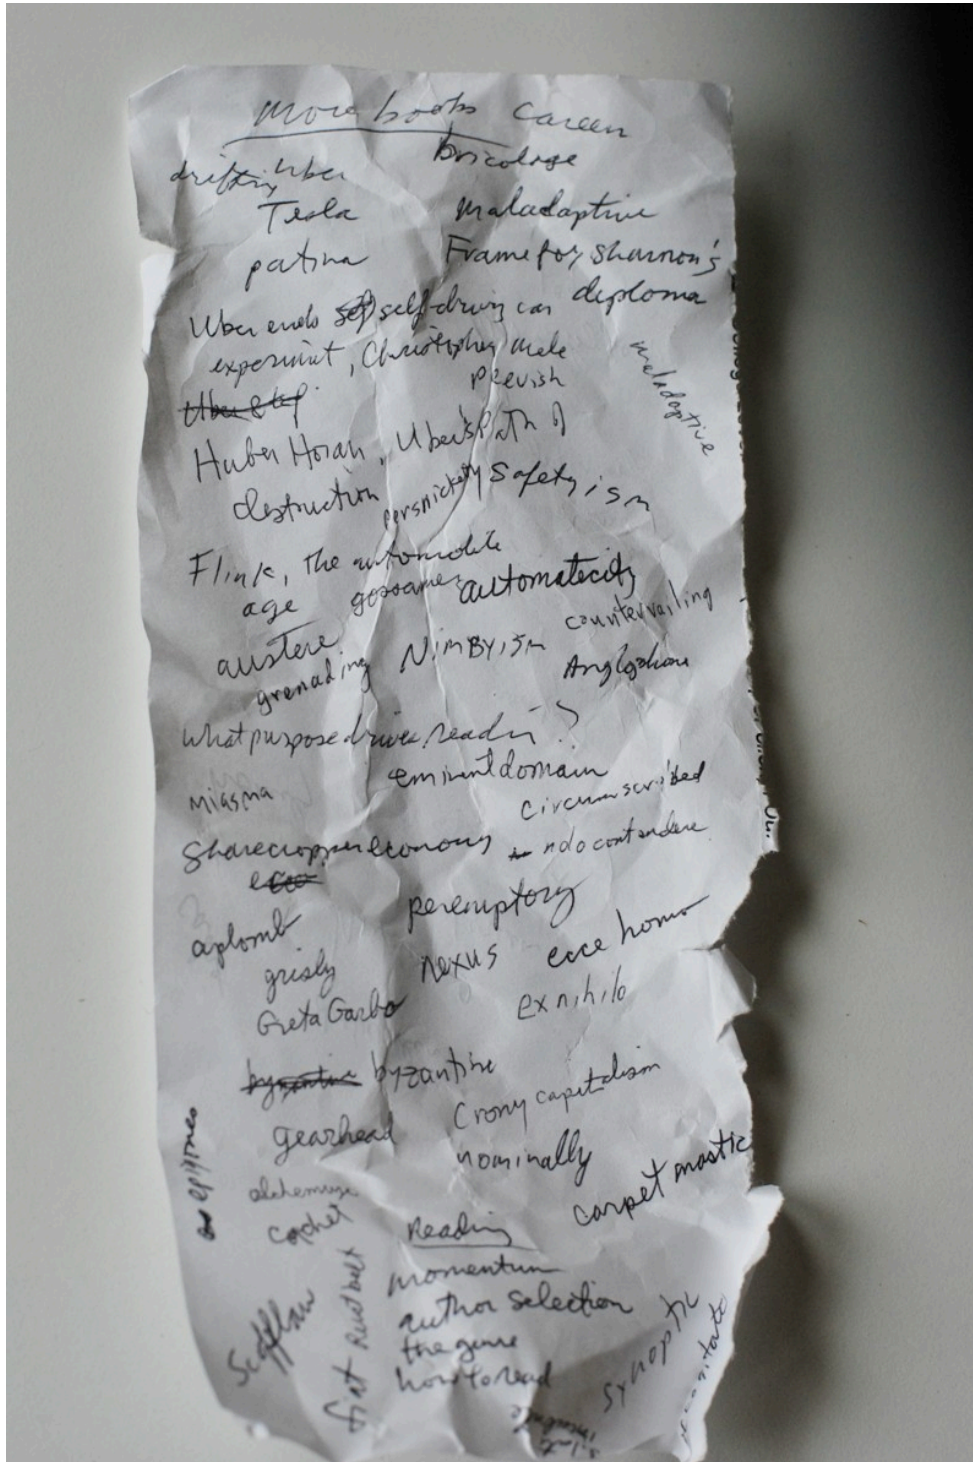 more books Careen
bricolage
drifting Uber
Tesla maladaptive
patina Frame for Shannon's
diploma
Uber ends self-driving car
experiment, Christopher Mele
peevish
maladaptive
Huber Horan, Uber's Path of
destruction persnickety safetyism
Flink, the automobile
age gossamer automaticity
austere NimBYism countervailing
grenading Anglophone
What purpose drives reading?
miasma eminent domain
circumscribed
Sharecropper economy nolo contendere
peremptory
aplomb nexus ecce homo
grisly
Greta Garbo ex nihilo
byzantine byzantine
Crony capitalism
gearhead nominally
epigones
carpet mastic
cachet Reading
momentum
author selection
the genre
how to read
Scofflaw
fiat Rust belt
synoptic